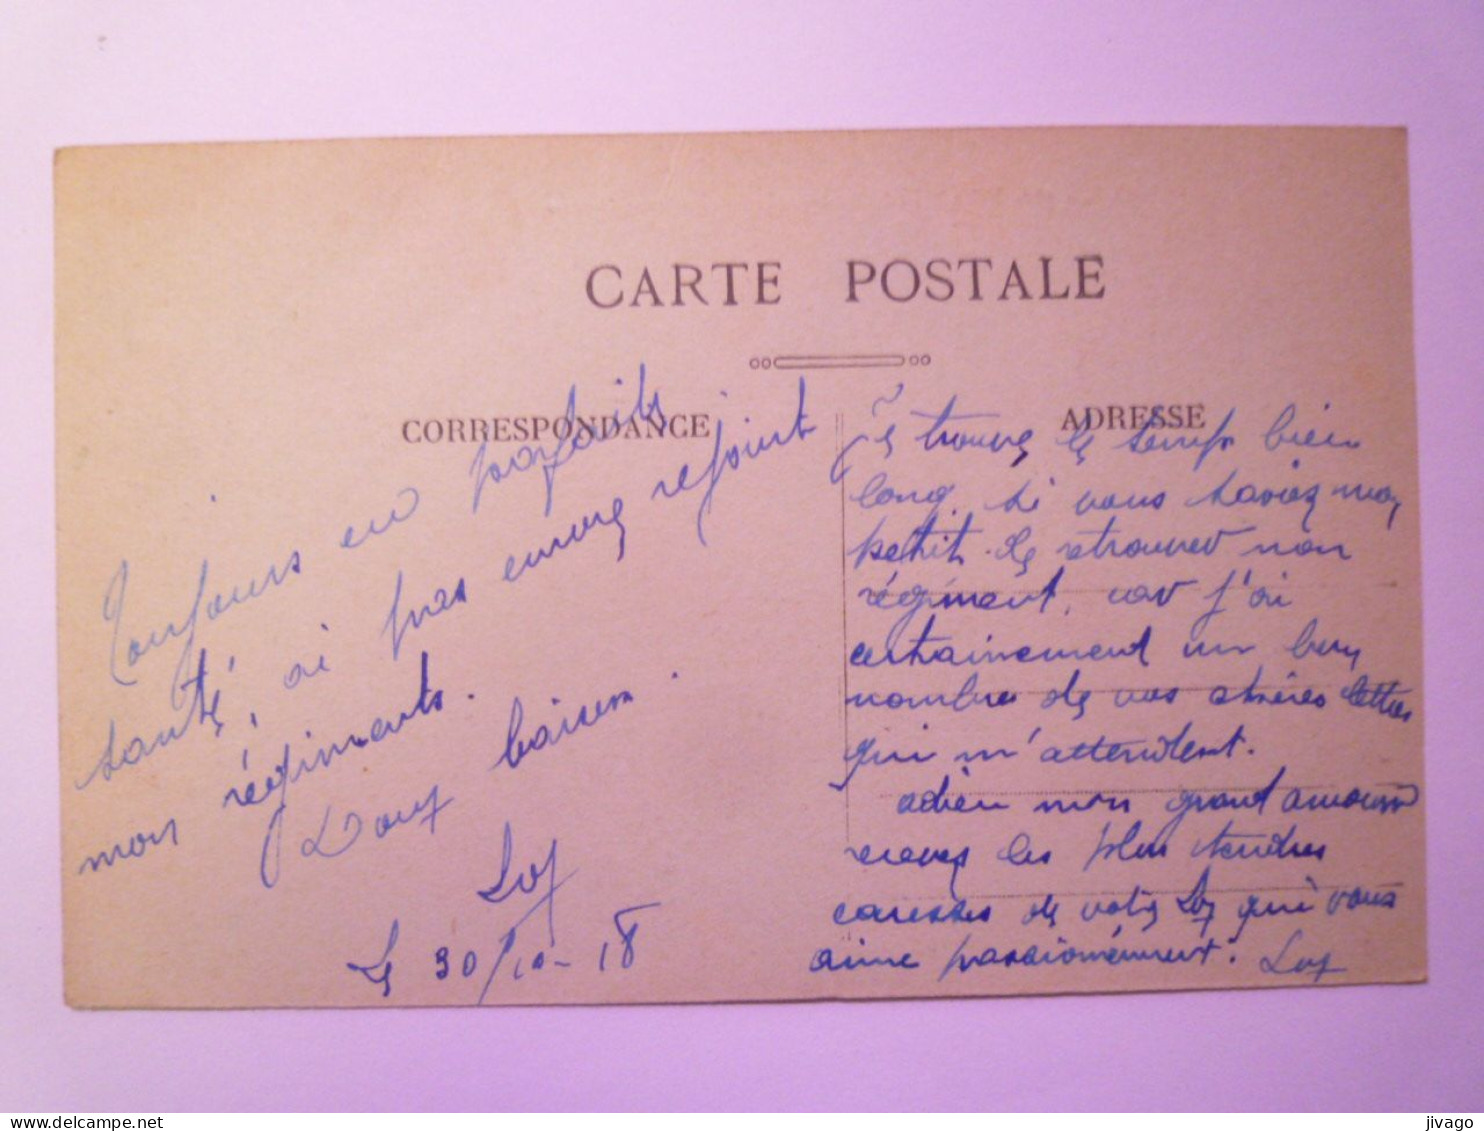 CARTE POSTALE
CORRESPONDANCE
ADRESSE
Toujours en parfaite
santé, ai pas encore rejoint
mon régiments.
Doux baisers.
Le 30/10-18
Je trouve le temps bien
long, si vous saviez mon
petit. De retrouver mon
régiment, car j'ai
certrainement un bon
nombre de vos chères lettres
qui m'attendent.
adieu mon grand amour
recevez les plus tendres
caresses de votre qui vous
aime passionément.
delcampe.net
jivago